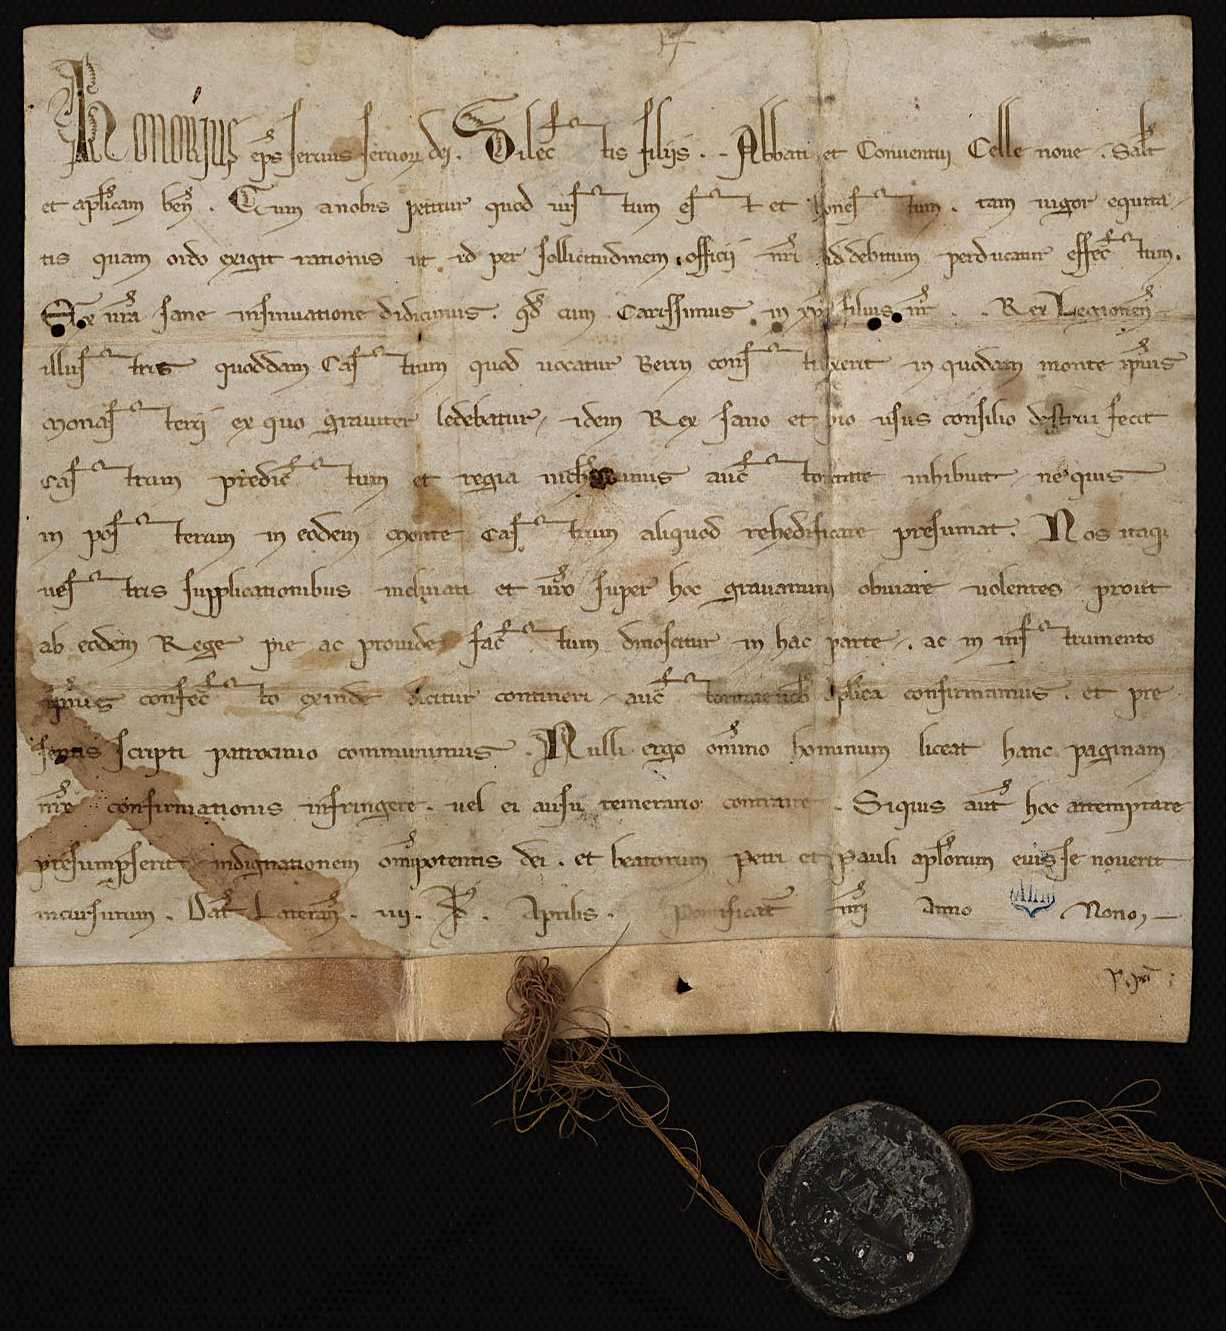 Honorius ep̄s servus servorū dei. Dilectis filiis .. Abbati et Conventui Celle nove. Salt̄
et aplicam beñ. Cum a nobis petitur quod iustum est et honestum. tam vigor equita-
tis quam ordo exigit rationis ut id per sollicitudinem officii nr̄i ad debitum perducatur effectum.
Ex vr̄a sane insinuatione didicimus. qd̄ cum Carissimus in xp̄o filius nr̄ .. Rex Legionen̄
illustris quoddam Castrum quod vocatur construxerit in quodam monte ip̄ius
Monasterii ex quo graviter ledebatur, idem Rex sano et pio usus consilio destrui fecit
Castrum predictum et regia nichilominus auctoritate inhibuit nequis
in posterum in eodem Monte Castrum aliquod rehedificare presumat. Nos itaq;
vestris supplicationibus inclinati et vr̄o super hoc gravamini obviare volentes prout
ab eodem Rege pie ac provide factum dinoscitur in hac parte, ac in instrumento
ip̄ius confecto exinde dicitur contineri, auctoritate apl̄ica confirmamus. et pre-
sentis scripti patrocinio communimus. Nulli ergo om̄ino hominum liceat hanc paginam
nr̄e confirmationis infringere. vel ei ausu temerario contraire. Siquis aut̄ hoc attemptare
presumpserit indignationem om̄ipotentis dei. et beatorum Petri et Pauli apl̄orum eius se noverit
incursurum. Dat̄ Lateran̄. iiij. Kl̄. Aprilis. Pontificat̄ nr̄i Anno Nono
AHN